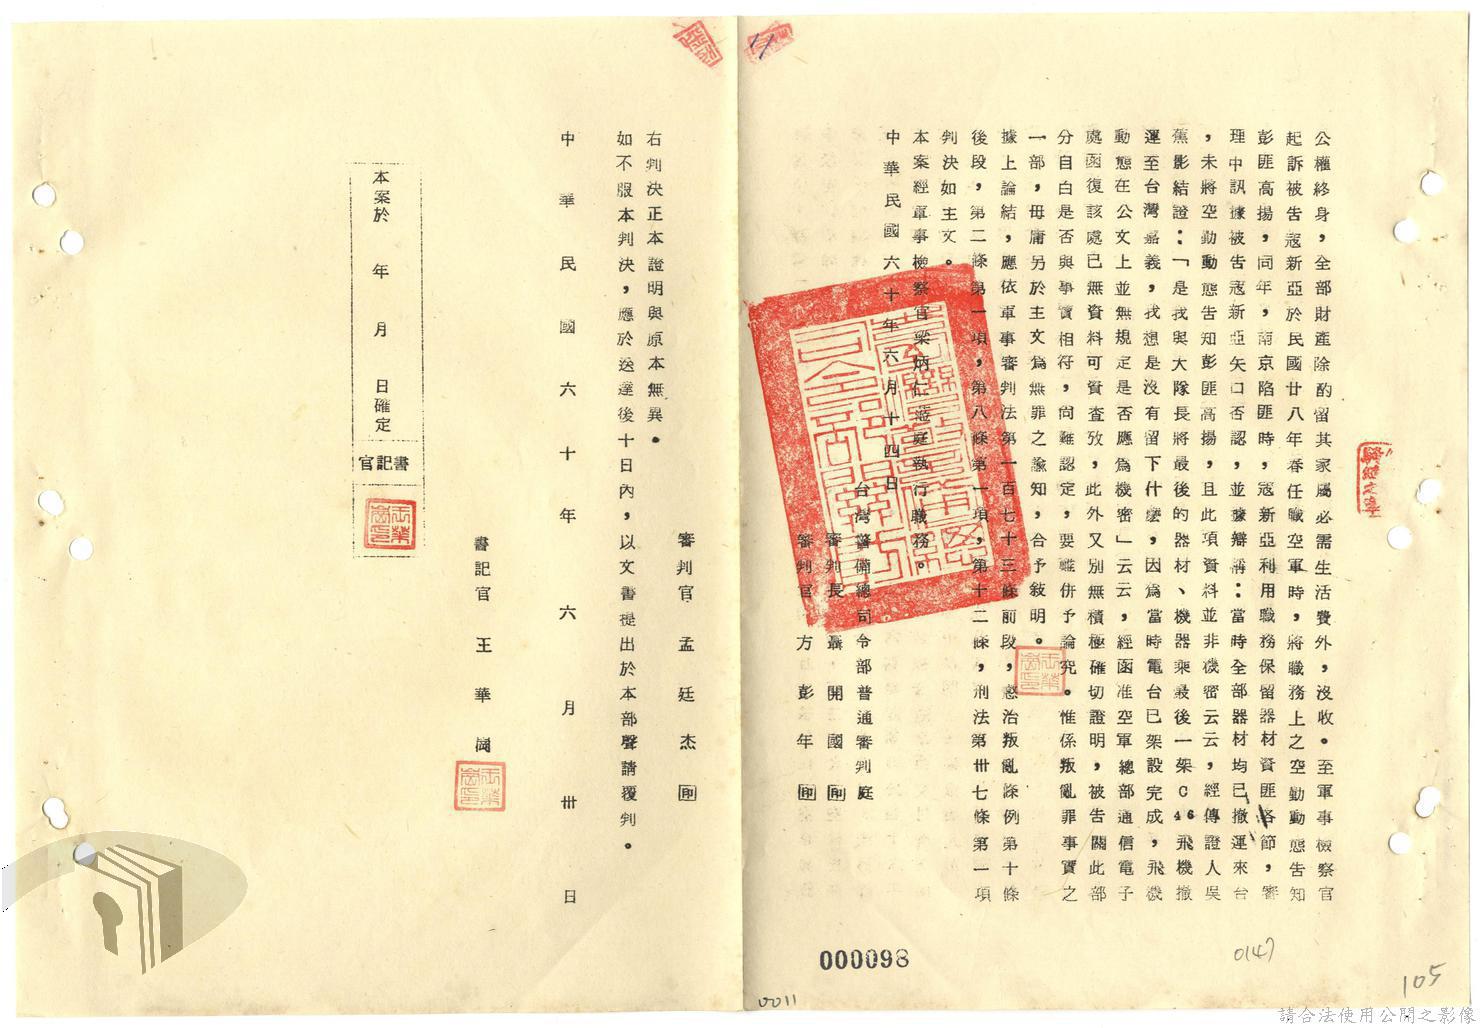 公權終身，全部財產除酌留其家屬必需生活費外，沒收。至軍事檢察官
起訴被告寇新亞於民國廿八年春任職空軍時，將職務上之空勤動態告知
彭匪高揚，同年，南京陷匪時，寇新亞利用職務保留器材資匪各節，審
理中訊據被告寇新亞矢口否認，並辯稱：當時全部器材均已撤運來台
，未將空勤動態告知彭匪高揚，且此項資料並非機密云云，經傳證人吳
蕉影結證：「是我與大隊長將最後的器材、機器乘最後一架C46飛機撤
運至台灣嘉義，我想是沒有留下什麼，因為當時電台已架設完成，飛機
動態在公文上並無規定是否應為機密」云云，經函准空軍總部通信電子
處函復該處已無資料可資查攷，此外又別無積極確切證明，被告關此部
分自白是否與事實相符，尚難認定，要難併予論究。惟係叛亂罪事實之
一部，毋庸另於主文為無罪之諭知，合予敘明。
據上論結，應依軍事審判法第一百七十三條前段，懲治叛亂條例第十條
後段，第二條第一項，第八條第一項，第十二條，刑法第卅七條第一項
判決如主文。
本案經軍事檢察官梁炳仁蒞庭執行職務。
中華民國六十年六月十四日
台灣警備總司令部普通審判庭
審判長 聶開國 印
審判官 方彭年 印
審判官 孟廷杰 印
右判決正本證明與原本無異。
如不服本判決，應於送達後十日內，以文書提出於本部聲請覆判。
中華民國六十年六月卅日
書記官 王華
本案於 年 月 日確定
書記官
000098
0011
0147
105
11
請合法使用公開之影像